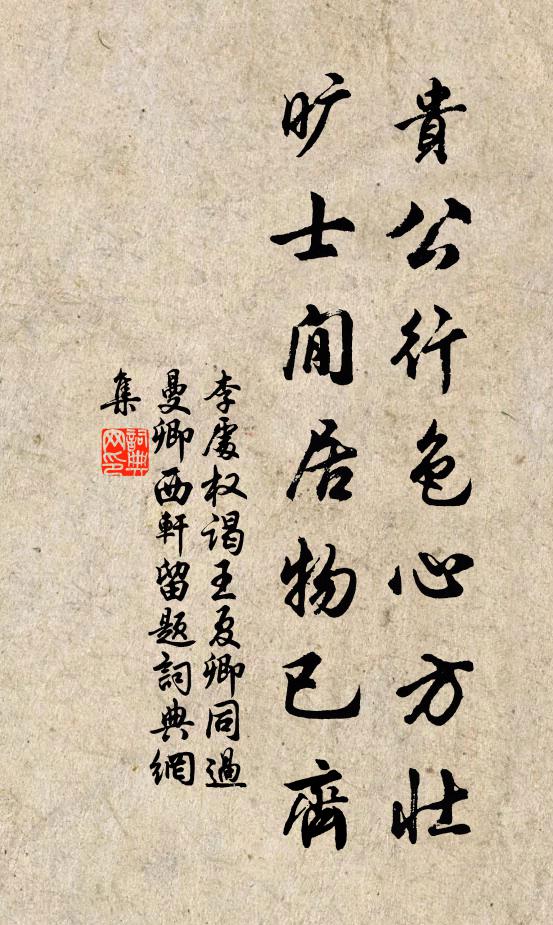 貴公行色心方壮
旷士閒居物已齊
李處权谒王夏卿同過
曼卿西軒留題詞典網
集
詞典
网印